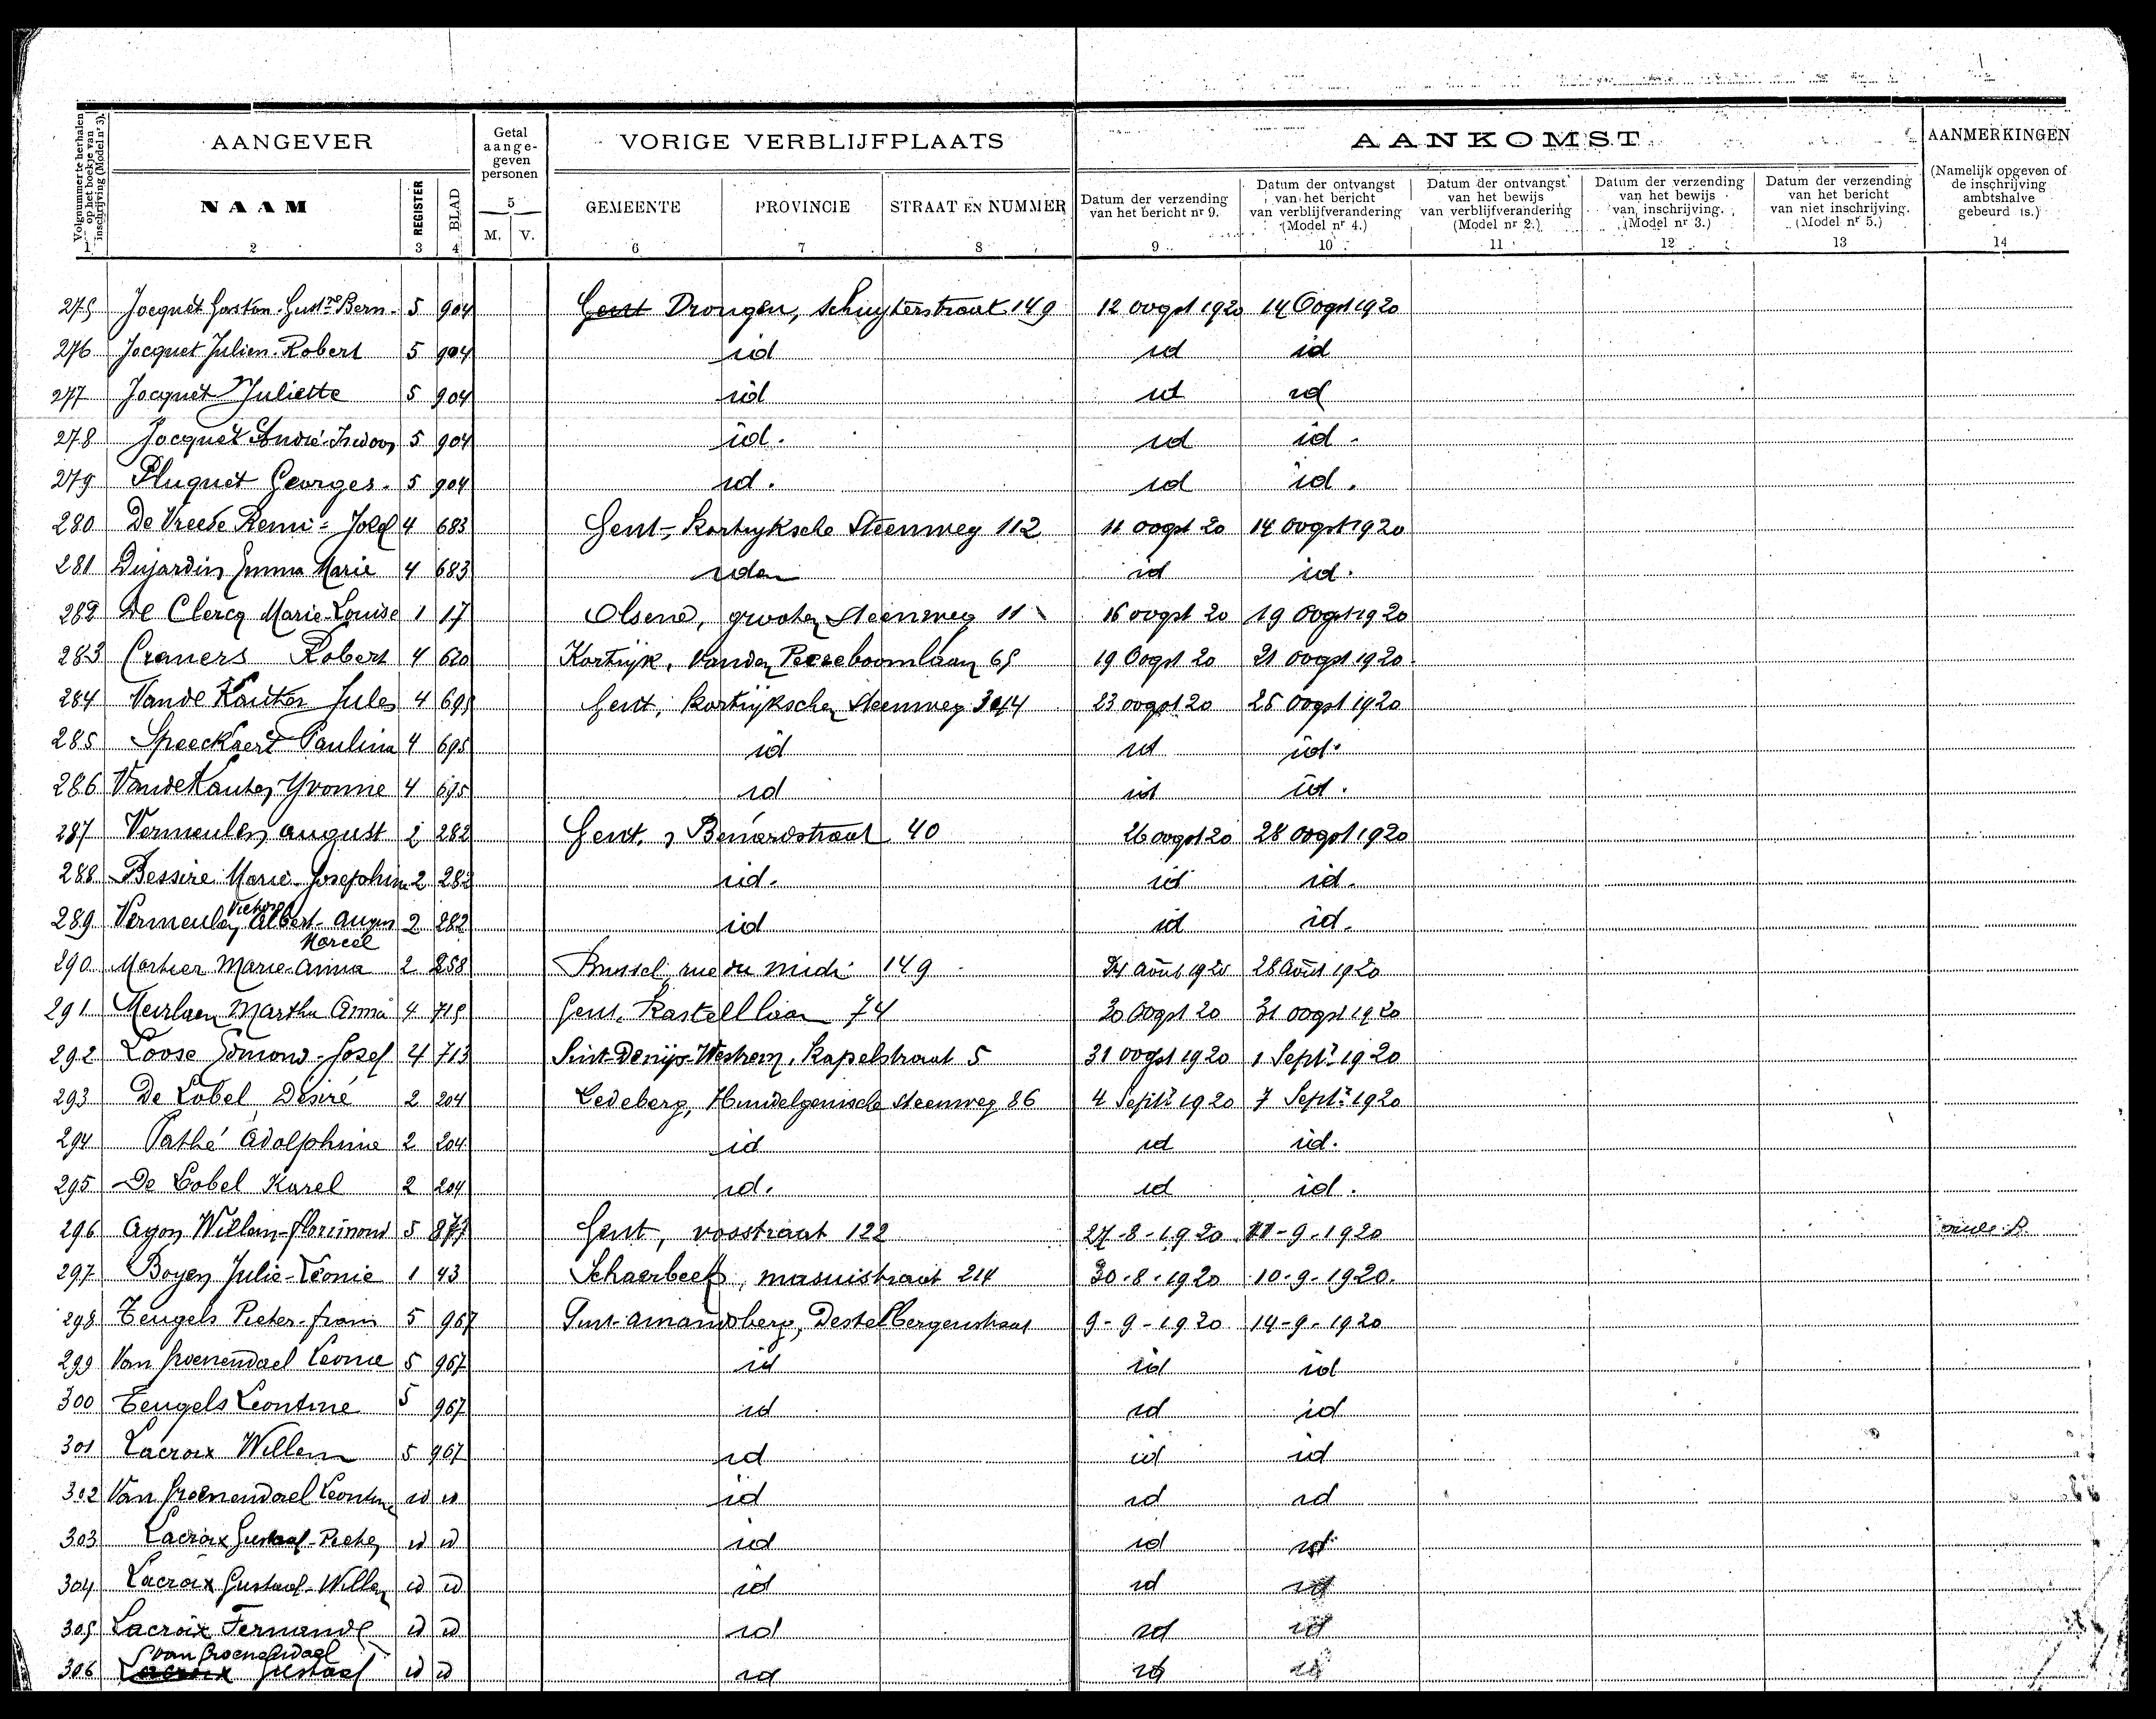 AANGEVER
Getal aangegeven personen
VORIGE VERBLIJFPLAATS
AANKOMST
AANMERKINGEN
Volgnummer te herhalen op het boekje van inschrijving (Model nr 3).
NAAM
REGISTER
BLAD
5
M. V.
GEMEENTE
PROVINCIE
STRAAT EN NUMMER
Datum der verzending van het bericht nr 9.
Datum der ontvangst van het bericht van verblijfverandering (Model nr 4.)
Datum der ontvangst van het bewijs van verblijfverandering (Model nr 2.)
Datum der verzending van het bewijs van inschrijving. (Model nr 3.)
Datum der verzending van het bericht van niet inschrijving. (Model nr 5.)
(Namelijk opgeven of de inschrijving ambtshalve gebeurd is.)
1 2 3 4 6 7 8 9 10 11 12 13 14
275 Jocquet Gaston-Gust.ve Bern. 5 904 Gent Drongen, Schuyterstraat 149 12 oogst 1920 14 Oogst 1920
276 Jocquet Julien-Robert 5 904 id id id
277 Jocquet Juliette 5 904 id id id
278 Jocquet André-Isidoor 5 904 id. id id.
279 Pluquet Georges. 5 904 id. id id.
280 De Vreese Remi-Josef 4 683 Gent, Kortrijksche Steenweg 112 11 oogst 20 14 oogst 1920
281 Dujardin Emma Marie 4 683 idem id id.
282 De Clercq Marie-Louise 1 17 Olsene, grooten Steenweg 11 16 oogst 20 19 Oogst 1920
283 Craners Robert 4 620 Kortrijk, Vanden Peereboomlaan 65 19 Oogst 20 21 oogst 1920.
284 Vande Kauter Jules 4 695 Gent, Kortrijkschen Steenweg 23 oogst 20 25 oogst 1920
285 Speeckaert Paulina 4 695 id id id.
286 Vande Kauter Yvonne 4 695 id id id.
287 Vermeulen August 2 282 Gent, Benardstraat 40 26 oogst 20 28 oogst 1920
288 Bessire Marie-Josephin 2 282 id. id id.
289 Vermeulen Albert-Augus Victor Marcel 2 282 id id id.
290 Martier Marie-Anna 2 258 Brussel, rue du midi 149 24 août 1920 28 Août 1920
291 Meirlaen Martha Anna 4 715 Gent, Kastellaan 74 30 Oogst 20 31 oogst 1920
292 Loose Edmond-Josef 4 713 Sint-Denijs-Westrem, Kapelstraat 5 31 oogst 1920 1 Sept.r 1920
293 De Lobel Désiré 2 204 Ledeberg, Hundelgemsche steenweg 86 4 Sept.r 1920 7 Sept.r 1920
294 Pathé Adolphine 2 204 id id id.
295 De Lobel Karel 2 204 id. id id.
296 Agon Willem-florimond 5 877 Gent, vosstraat 122 27-8-1920 11-9-1920
297 Boyen Julie-Léonie 1 43 Schaerbeek, masuistraat 214 30-8-1920 10-9-1920.
298 Teugels Pieter-frans 5 967 Sint-Amandsberg, Destelbergenstraat 9-9-1920 14-9-1920
299 Van Groenendael Leonie 5 967 id id id
300 Teugels Leontine 5 967 id id id
301 Lacroix Willem 5 967 id id id
302 Van Groenendael Leontine id id id id id
303 Lacroix Gustaaf-Pieter id id id id id
304 Lacroix Gustaaf-Willem id id id id id
305 Lacroix Fernande id id id id id
306 Van Groenendael Lacroix Gustaaf id id id id id